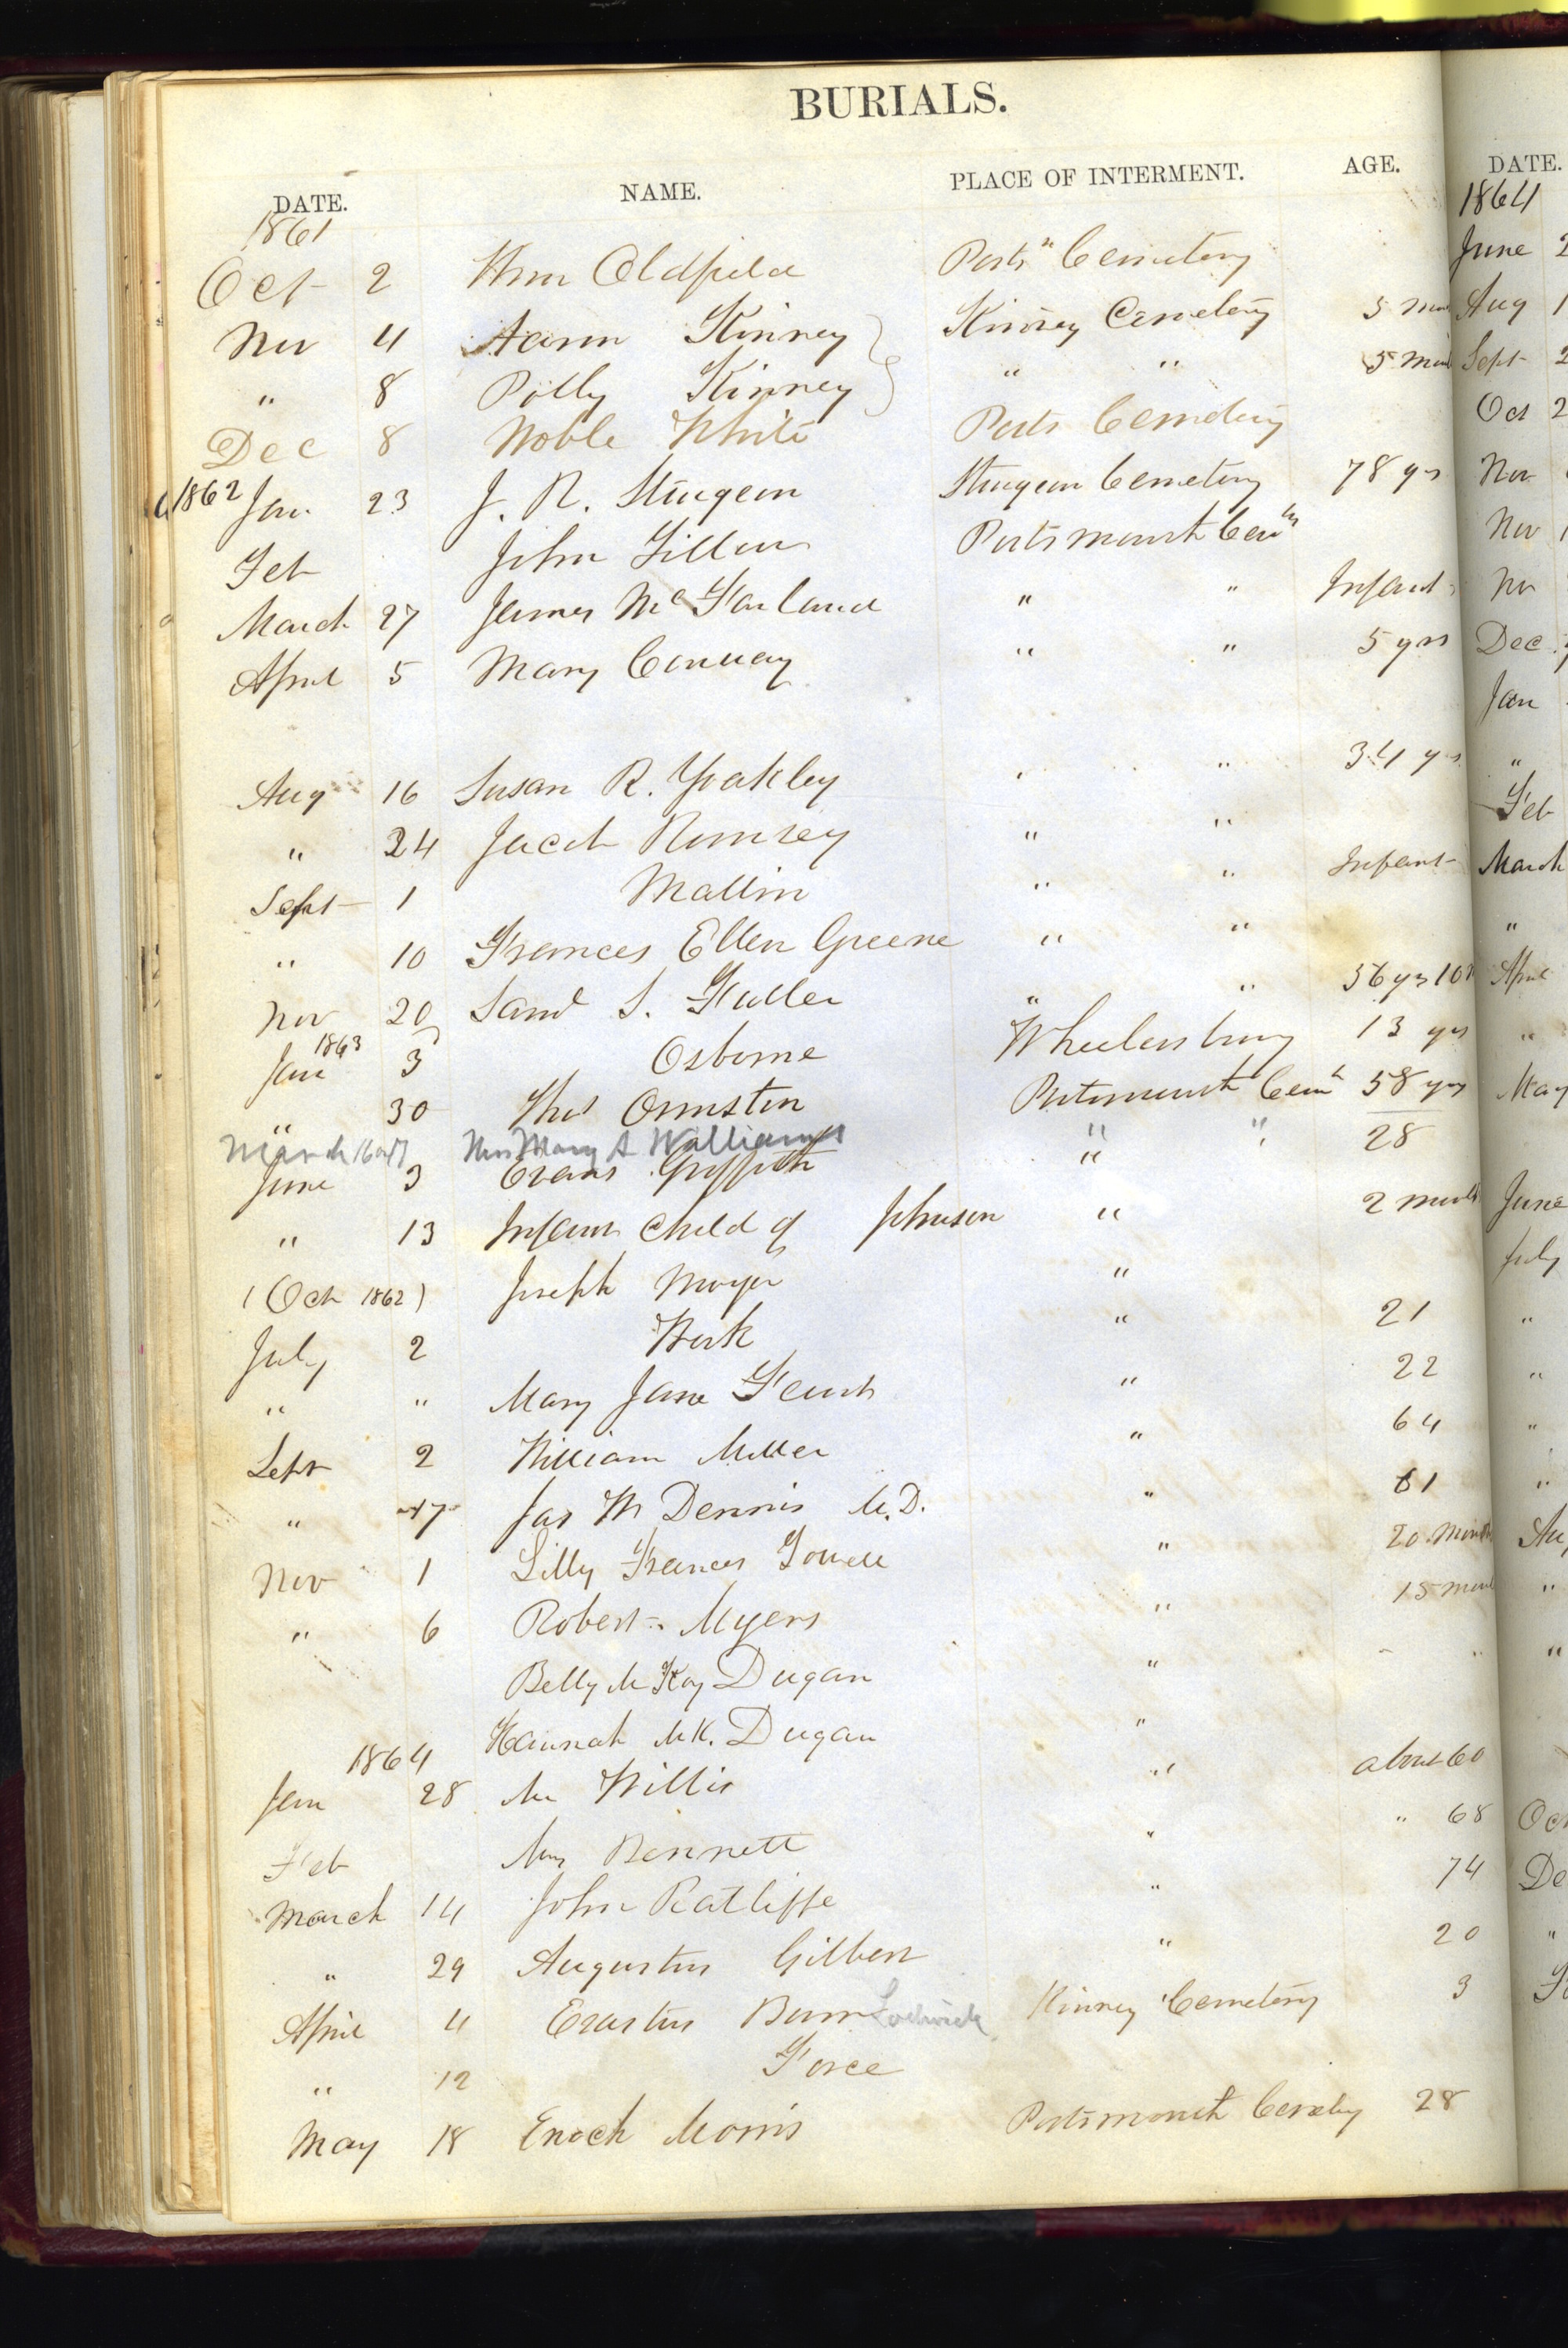 BURIALS.
DATE. NAME. PLACE OF INTERMENT. AGE.
1861
Oct 2 Wm Oldfield Ports" Cemetery
Nov 4 Aaron Kinney Kinney Cemetery 5 mon
" 8 Polly Kinney " " 5 mon
Dec 8 Noble White Ports Cemetery
1862 Jan. 23 J. R. Sturgeon Sturgeon Cemetery 78 yrs
Feb John Portsmouth Cem
March 27 James McFarland " " Infant
April 5 Mary Conway " " 5 yrs
Aug 16 Susan R. Yoakley " " 34 yrs
" 24 Jacob Rumsey " "
Sept 1 " " Infant
" 10 Frances Ellen Greene " "
Nov 20 Saml S. Fuller " " 56 yrs 10
1863
Jan 3 Osborne Wheelersburg 13 yrs
" 30 Thos Ormston Portsmouth Cem 58 yrs
March 16 Mrs Mary A Williams " "
June 3 Evans Griffith " 28
" 13 Infant Child of Johnson " 2 months
(Oct 1862) Joseph Moyer "
July 2 " 21
" " Mary Jane " 22
Sept 2 William Miller " 64
" 17 Jas W Dennis M.D. " 61
Nov 1 Lilly Frances " 20 Month
" 6 Robert Myers " 15 mon
Belly McKoy Dugan "
Hannah McK. Dugan "
1864
Jan 28 Mr Willis " about 60
Feb Mrs Bennett " " 68
March 14 John Ratliffe " 74
" 29 Augustus Gilbert " 20
April 4 Erastus Burr Lodwick Kinney Cemetery 3
" 12 Force
May 18 Enoch Morris Portsmouth Cemetery 28
DATE.
1864
June 2
Aug 1
Sept 2
Oct 2
Nov
Nov 1
Nov
Dec
Jan
"
Feb
March
"
April
"
May
June
July
"
"
"
"
"
"
"
"